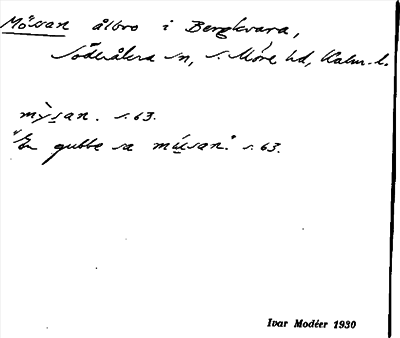 Mössan ålbro i Bergkvara,
Söderåkra sn, s. Möre hd, Kalm. l.
mỳsan. s. 63.
"En gubbe sa músan." s. 63.
Ivar Modéer 1930